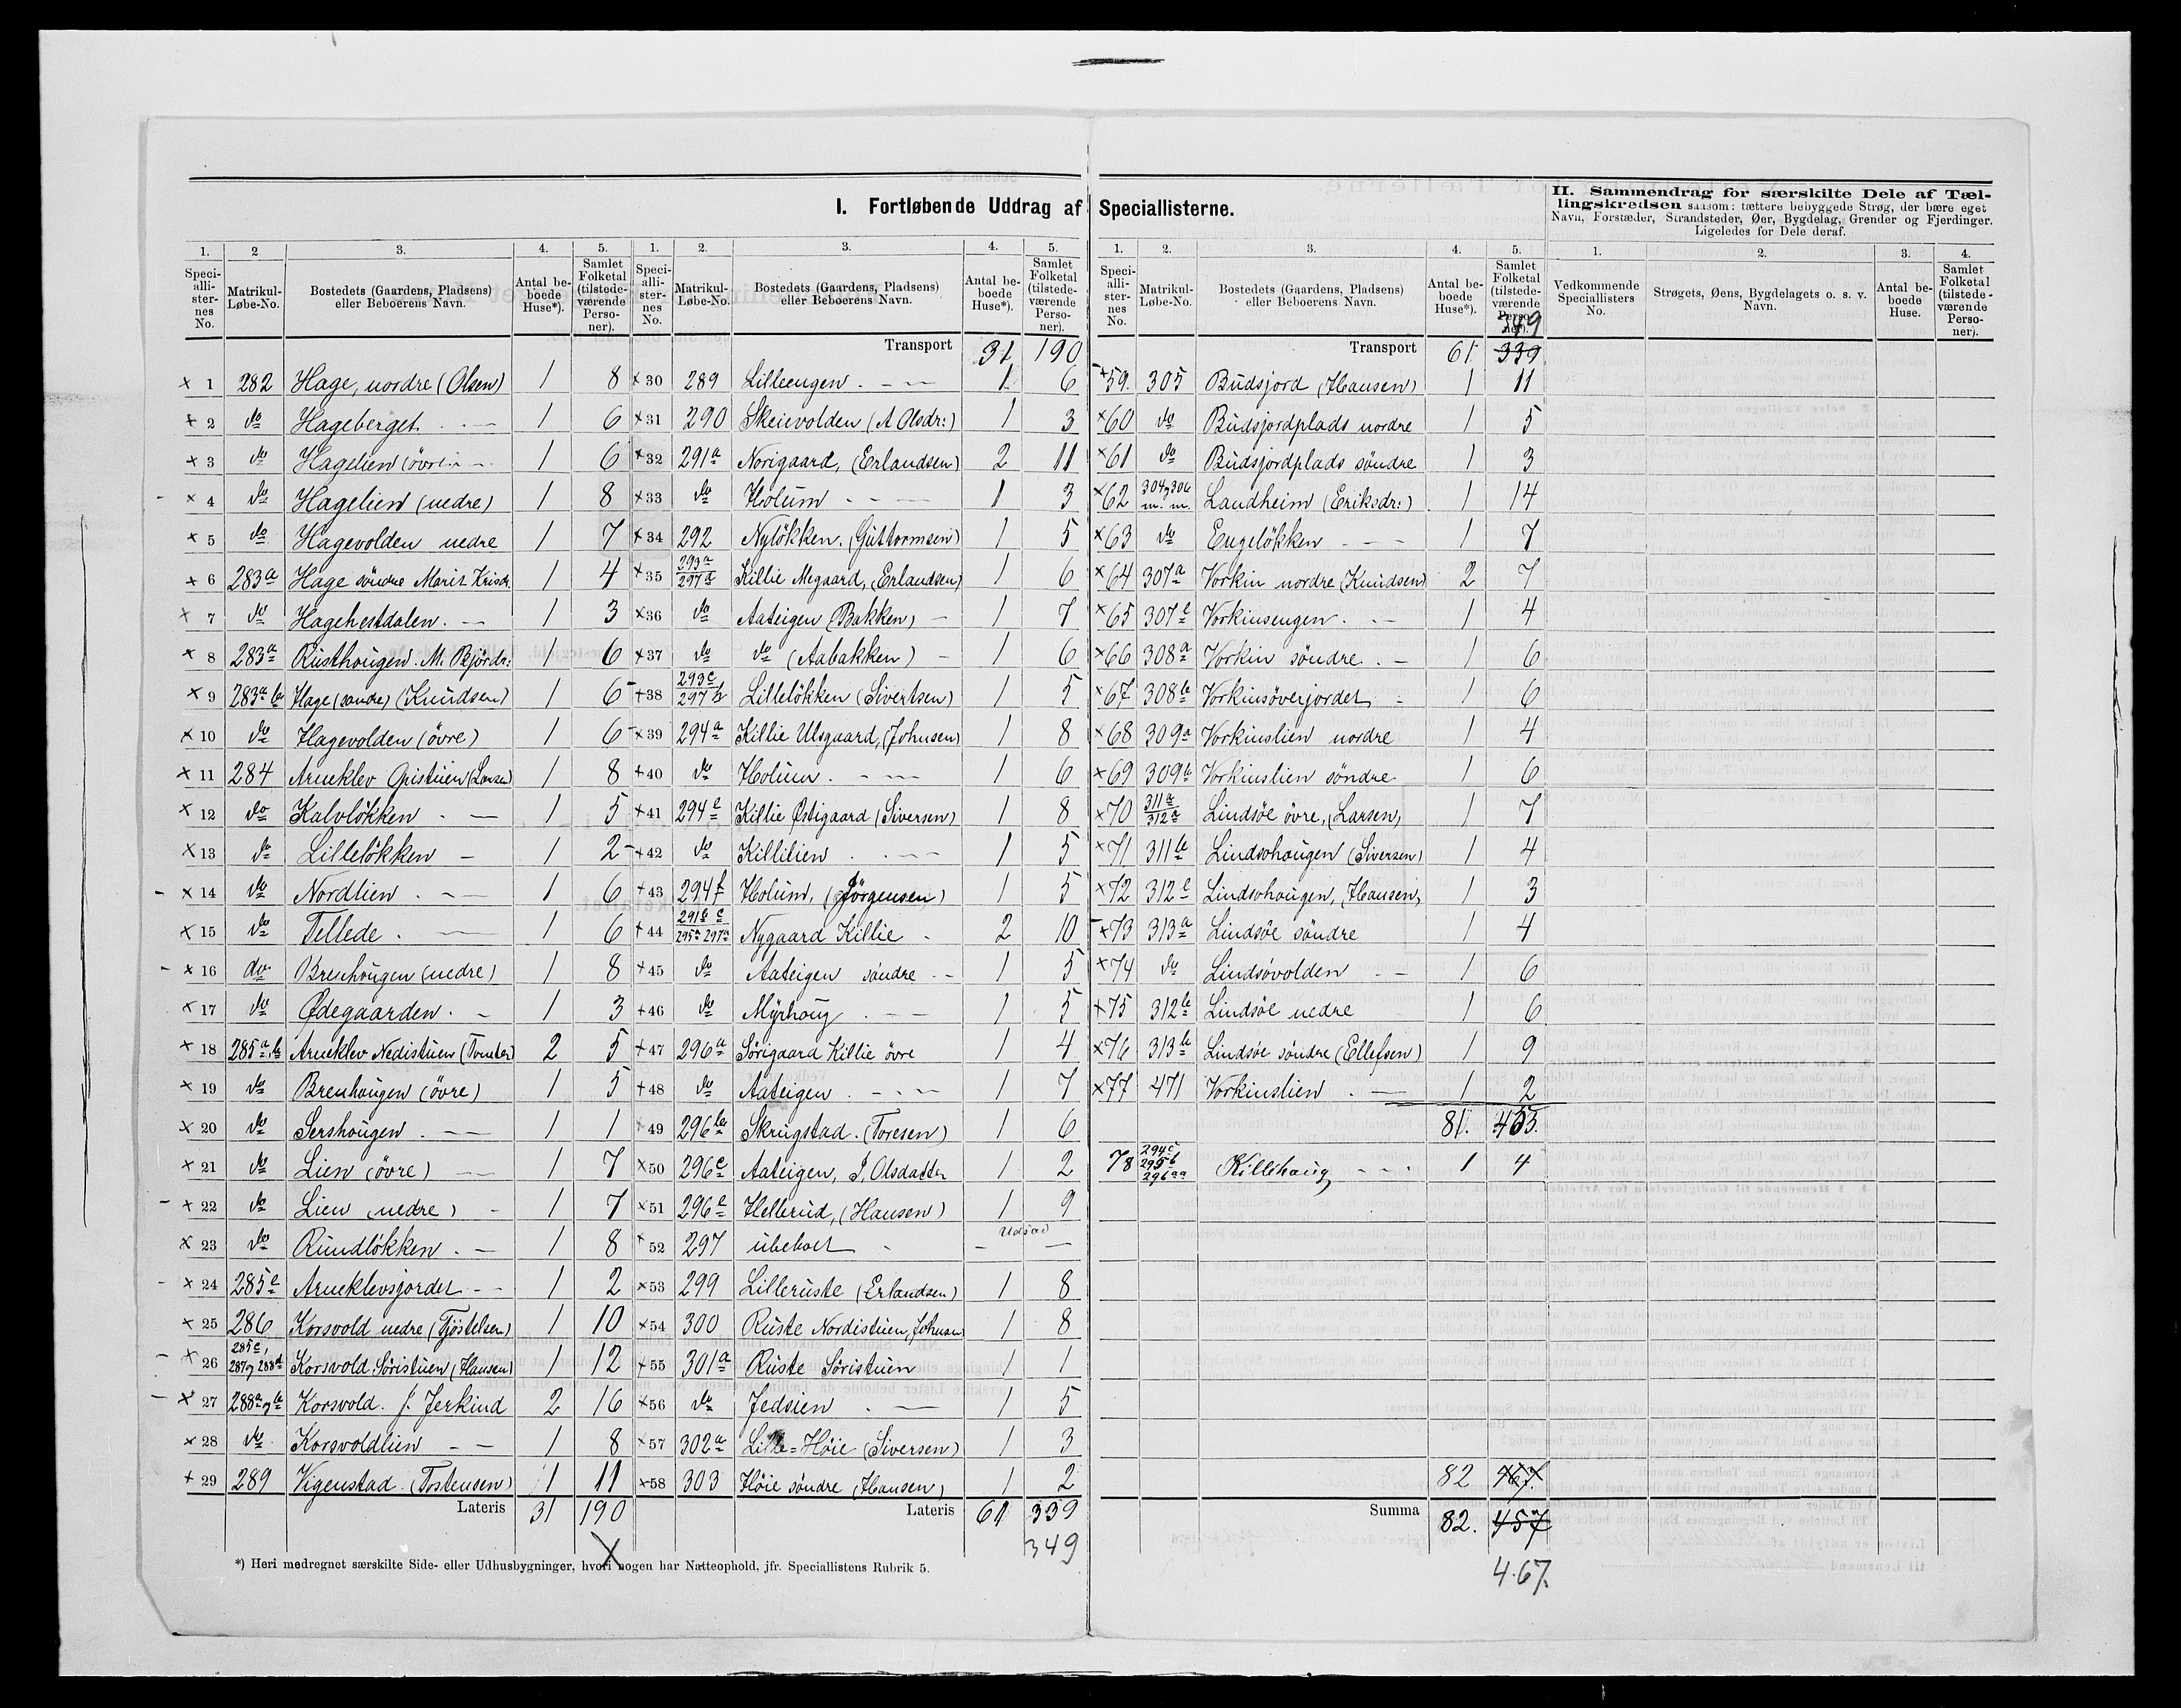 I. Fortløbende Uddrag af Speciallisterne.
II. Sammendrag for særskilte Dele af Tæl-
lingskredsen saasom: tættere bebyggede Strøg, der bære eget
Navn, Forstæder, Strandsteder, Øer, Bygdelag, Grender og Fjerdinger.
Ligeledes for Dele deraf.
1. 2 3. 4. 5.
Speci-alli-ster-nes No. Matrikul-Løbe-No. Bostedets (Gaardens, Pladsens) eller Beboerens Navn. Antal be-boede Huse*). Samlet Folketal (tilstede-værende Perso-ner).
× 1 282 Hage, nordre (Olsen) 1 8
× 2 do Hageberget 1 6
× 3 do Hagelien (övre) 1 6
× 4 do Hagelien (nedre) 1 8
× 5 do Hagevolden nedre 1 7
× 6 283a Hage söndre Marit Krisdr. 1 4
× 7 do Hagehestdalen 1 3
× 8 283a Rusthougen. M. Björdr: 1 6
× 9 283a b Hage (søndre) (Knudsen) 1 6
× 10 do Hagevolden (övre) 1 6
× 11 284 Arneklev Opistuen (Larsen) 1 8
× 12 do Kalvlökken 1 5
× 13 do Lillelökken 1 2
× 14 do Nordlien 1 6
× 15 do Tellede 1 6
× 16 do Brenhougen (nedre) 1 8
× 17 do Ødegaarden 1 3
× 18 285a.b Arneklev Nedistuen (Tomter) 2 5
× 19 do Brenhougen (övre) 1 5
× 20 do Sershougen 1 1
× 21 do Lien (övre) 1 7
× 22 do Lien (nedre) 1 7
× 23 do Rundlökken 1 8
× 24 285c Arneklevsjordet 1 2
× 25 286 Korsvold nedre (Tjöstelsen) 1 10
× 26 285c, 287 og 288d Korsvold Söristuen (Hansen) 1 12
× 27 288a og b Korsvold. J. Jerkind 2 16
× 28 do Korsvoldlien 1 8
+ 29 289 Vigenstad (Tostensen) 1 11
Lateris 31 190
1. 2. 3. 4. 5.
Speci-alli-ster-nes No. Matrikul-Løbe-No. Bostedets (Gaardens, Pladsens) eller Beboerens Navn. Antal be-boede Huse*). Samlet Folketal (tilstede-værende Perso-ner).
Transport 31 190
× 30 289 Lilleengen 1 6
×31 290 Skeievolden (A Olsdr:) 1 3
×32 291a Norigaard, (Erlandsen) 2 11
×33 do Holum 1 3
×34 292 Nylökken. (Guttormsen) 1 5
×35 293a 297d Killie Megaard, (Erlandsen) 1 6
×36 do Aateigen (Bakken) 1 7
×37 do do (Aabakken) 1 6
+38 293c 297b Lillelökken (Sivertsen) 1 5
×39 294a Killie Utsgaard, (Johnsen) 1 8
+40 do Holum 1 6
+41 294c Killie Østigaard (Siversen) 1 8
+42 do Killilien 1 5
+43 294f Holum, (Jörgensen) 1 5
+44 291b c 295a 297a Nygaard Killie 2 10
+45 do Aateigen söndre 1 5
+46 do Myrhoug 1 5
+47 296a Sörigaard Killie övre 1 4
+48 do Aateigen 1 7
49 296b Skrugstad. (Toresen) 1 6
×50 296c Aateigen, I. Olsdatter 1 2
×51 296e Hellerud, (Hansen) 1 9
52 297 ubeboet Udsad
×53 299 Lilleruste (Erlandsen) 1 8
×54 300 Ruste Nordistuen, Johnsen 1 8
+55 301a Ruste Söristuen 1 1
×56 do Jedsien 1 5
×57 302a Lille=Höie (Siversen) 1 3
×58 303 Höie söndre (Hansen) 1 2
Lateris 61 339
349
1. 2. 3. 4. 5.
Speci-alli-ster-nes No. Matrikul-Løbe-No. Bostedets (Gaardens, Pladsens) eller Beboerens Navn. Antal be-boede Huse*). Samlet Folketal (tilstede-værende Perso-ner).
349
Transport 61 339
+59. 305 Budsjord (Hansen) 1 11
×60 do Budsjordplads nordre 1 5
×61 do Budsjordplads söndre 1 3
×62 304 og 306 m. m. Landheim (Eriksdr:) 1 14
×63 do Engelökken 1 7
×64 307a Vorkin nordre (Knudsen) 2 7
×65 307c Vorkinsengen 1 4
×66 308a Vorkin söndre 1 6
×67 308b Vorkinsöverjordet 1 6
×68 309a Vorkinslien nordre 1 4
×69 309a Vorkinslien söndre 1 6
×70 311a 312a Lindsöe övre, (Larsen) 1 7
×71 311b Lindsohougen (Siversen) 1 4
×72 312c Lindsohougen, (Hansen) 1 3
×73 313a Lindsöe söndre 1 4
×74 do Lindsövolden 1 6
+75 312b Lindsöe nedre 1 6
×76 313b Lindsöe söndre (Ellefsen) 1 9
×77 471 Vorkinslien 1 2
81. 453.
78 294c 295b 296aa Killihaug 1 4
82 467.
Summa 82. 457
467.
1. 2. 3. 4.
Vedkommende Speciallisters No. Strøgets, Øens, Bygdelagets o. s. v. Navn. Antal be-boede Huse. Samlet Folketal (tilstede-værende Perso-ner).
*) Heri medregnet særskilte Side- eller Udhusbygninger, hvori nogen har Natteophold, jfr. Speciallistens Rubrik 5.